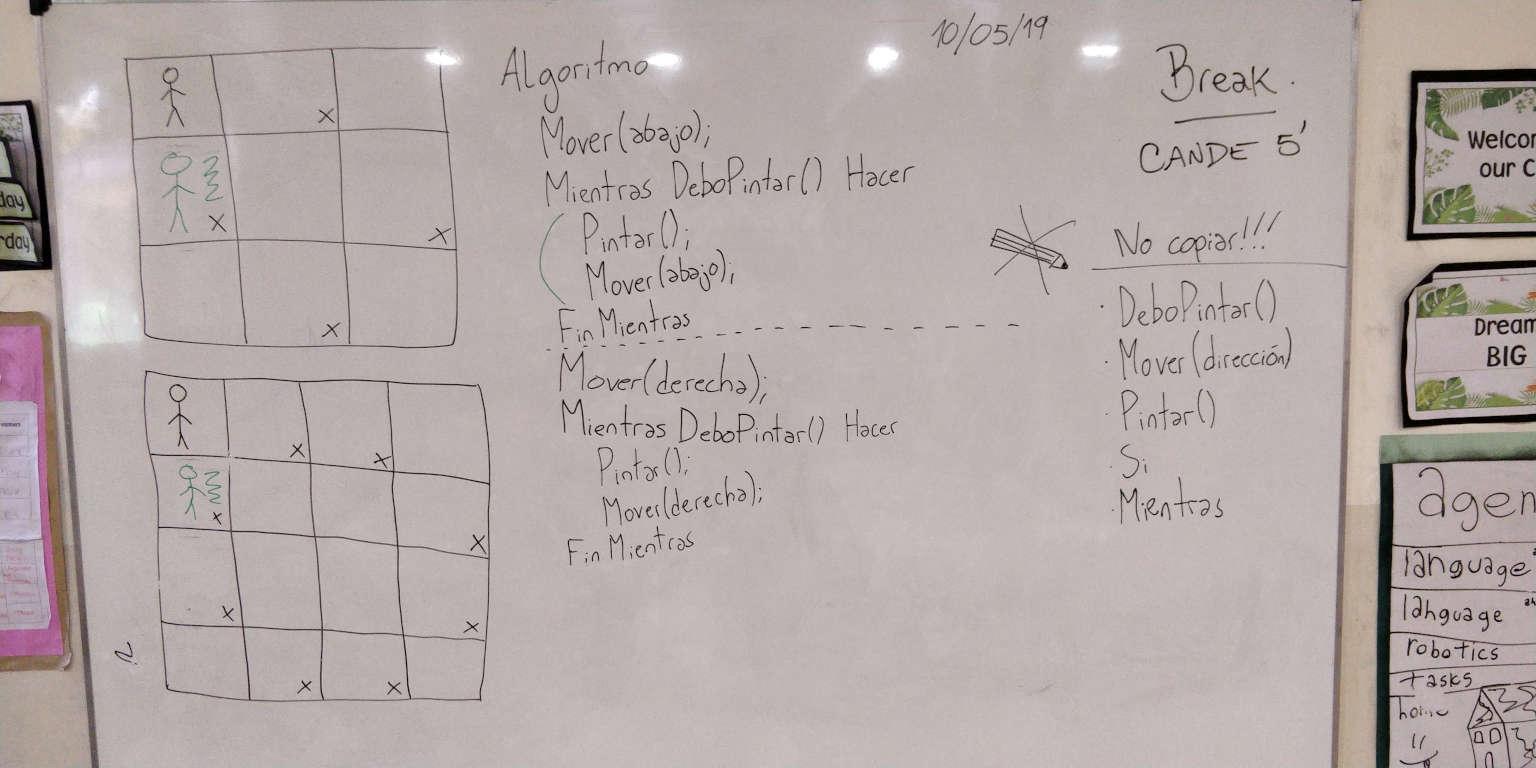 10/05/19
Algoritmo
Mover(abajo);
Mientras DeboPintar() Hacer
Pintar();
Mover(abajo);
Fin Mientras
Mover(derecha);
Mientras DeboPintar() Hacer
Pintar();
Mover(derecha);
Fin Mientras
Break.
CANDE 5'
No copiar!!!
· DeboPintar()
· Mover(dirección)
· Pintar()
· Si
· Mientras
x
x
x
x
x
x
x
x
x
x
x
x
day
rday
Welcom
our C
Dream
BIG
agen
language
language
robotics
tasks
home